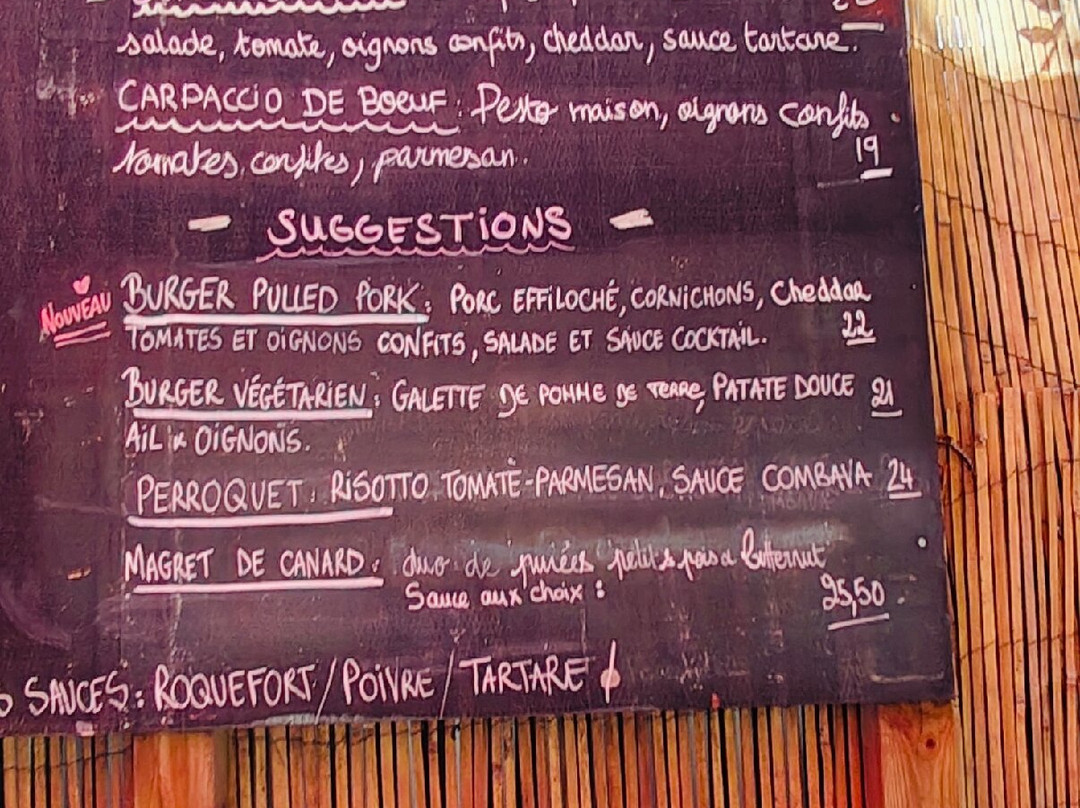 salade, tomate, oignons confits, cheddar, sauce tartare.
CARPACCIO DE BOEUF : Pesto maison, oignons confits
tomates confites, parmesan. 19
SUGGESTIONS
NOUVEAU BURGER PULLED PORK : PORC EFFILOCHÉ, CORNICHONS, Cheddar
TOMATES ET OIGNONS CONFITS, SALADE ET SAUCE COCKTAIL. 22
BURGER VÉGÉTARIEN : GALETTE DE POMME DE TERRE, PATATE DOUCE 21
AIL & OIGNONS.
PERROQUET : RISOTTO TOMATE-PARMESAN, SAUCE COMBAVA 24
MAGRET DE CANARD : duo de purées petits pois & Butternut
Sauce aux choix : 25,50
SAUCES : ROQUEFORT / POIVRE / TARTARE